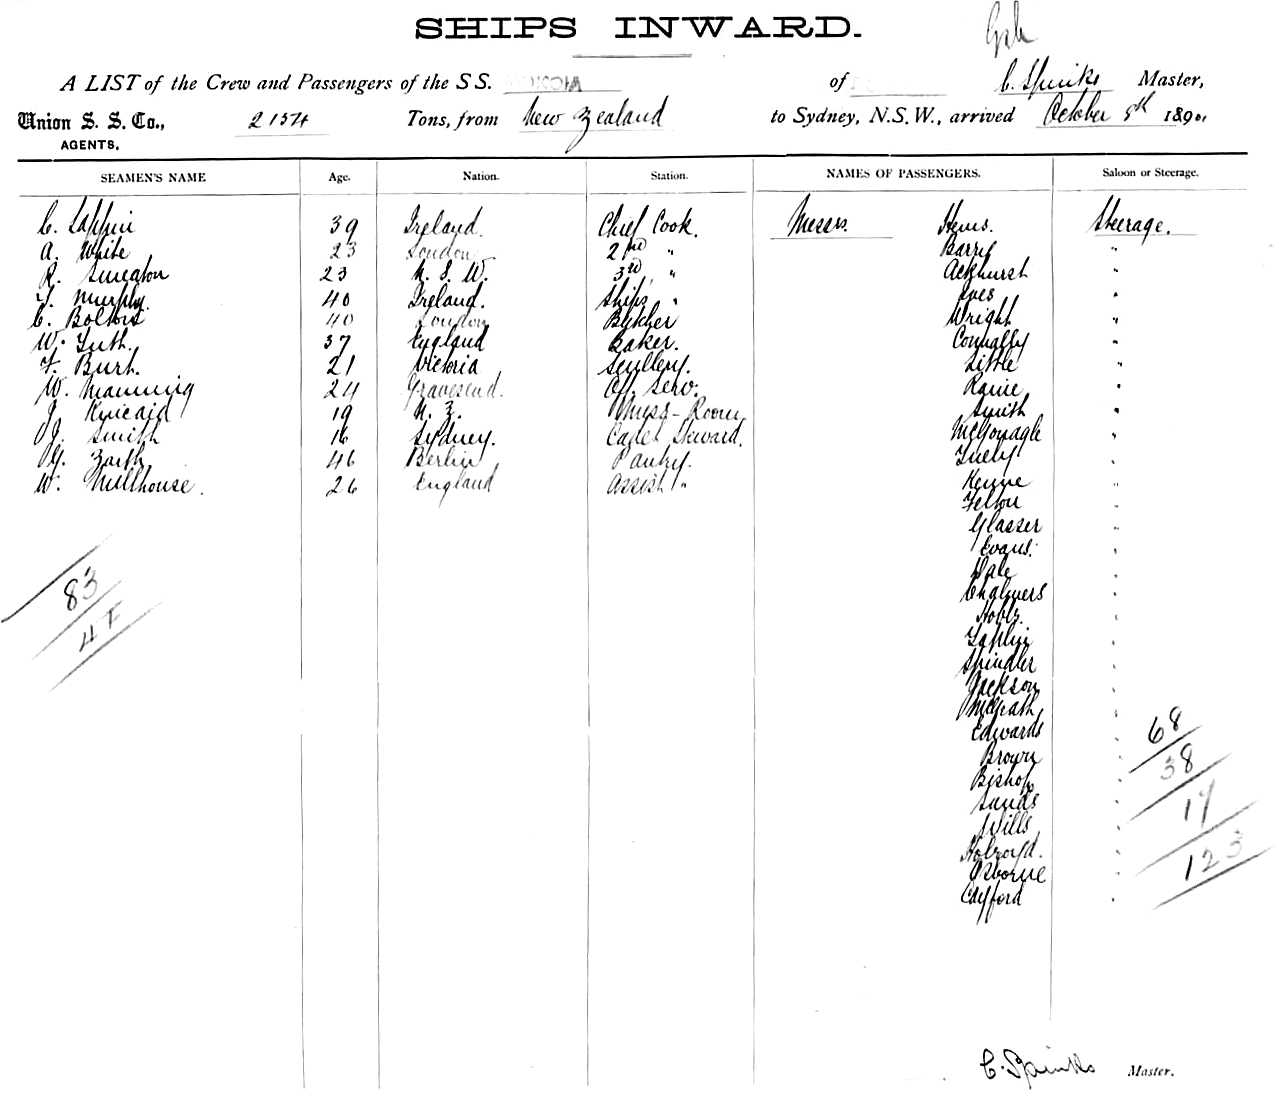 SHIPS INWARD.
A LIST of the Crew and Passengers of the S.S. of C. Spinks Master,
Union S. S. Co., 2154 Tons, from New Zealand to Sydney, N.S.W., arrived October 8th 1890.
AGENTS.
SEAMEN'S NAME Age. Nation. Station. NAMES OF PASSENGERS. Saloon or Steerage.
C. 39 Ireland. Chief Cook. Messrs. Hems. Steerage.
A. White 23 London 2nd " Barry "
R. Smeaton 23 N. S. W. 3rd " Ackhurst "
T. Murphy. 40 Ireland. Ships " Ives "
C. 40 London Butcher Wright "
W. Tuth. 37 England Baker. Connally "
F. Burt. 21 Victoria Scullery. Little "
W. Manning 24 Gravesend. Off. Serv. "
J. Kincaid 19 N. Z. Mess-Room Smith "
J. Smith 16 Sydney. Cadet Steward. McGonagle "
G. 46 Berlin Pantry. "
W. Millhouse. 26 England Assist " "
Felton "
Glasser "
Evans. "
Dale "
Chalmers "
"
Taplin "
Spindler "
Jackson "
McGrath "
Edwards "
Brown "
Bishop "
Sands "
Wills "
Holroyd. "
Osborne "
Cayford "
83
68
38
17
123
C. Spinks Master.